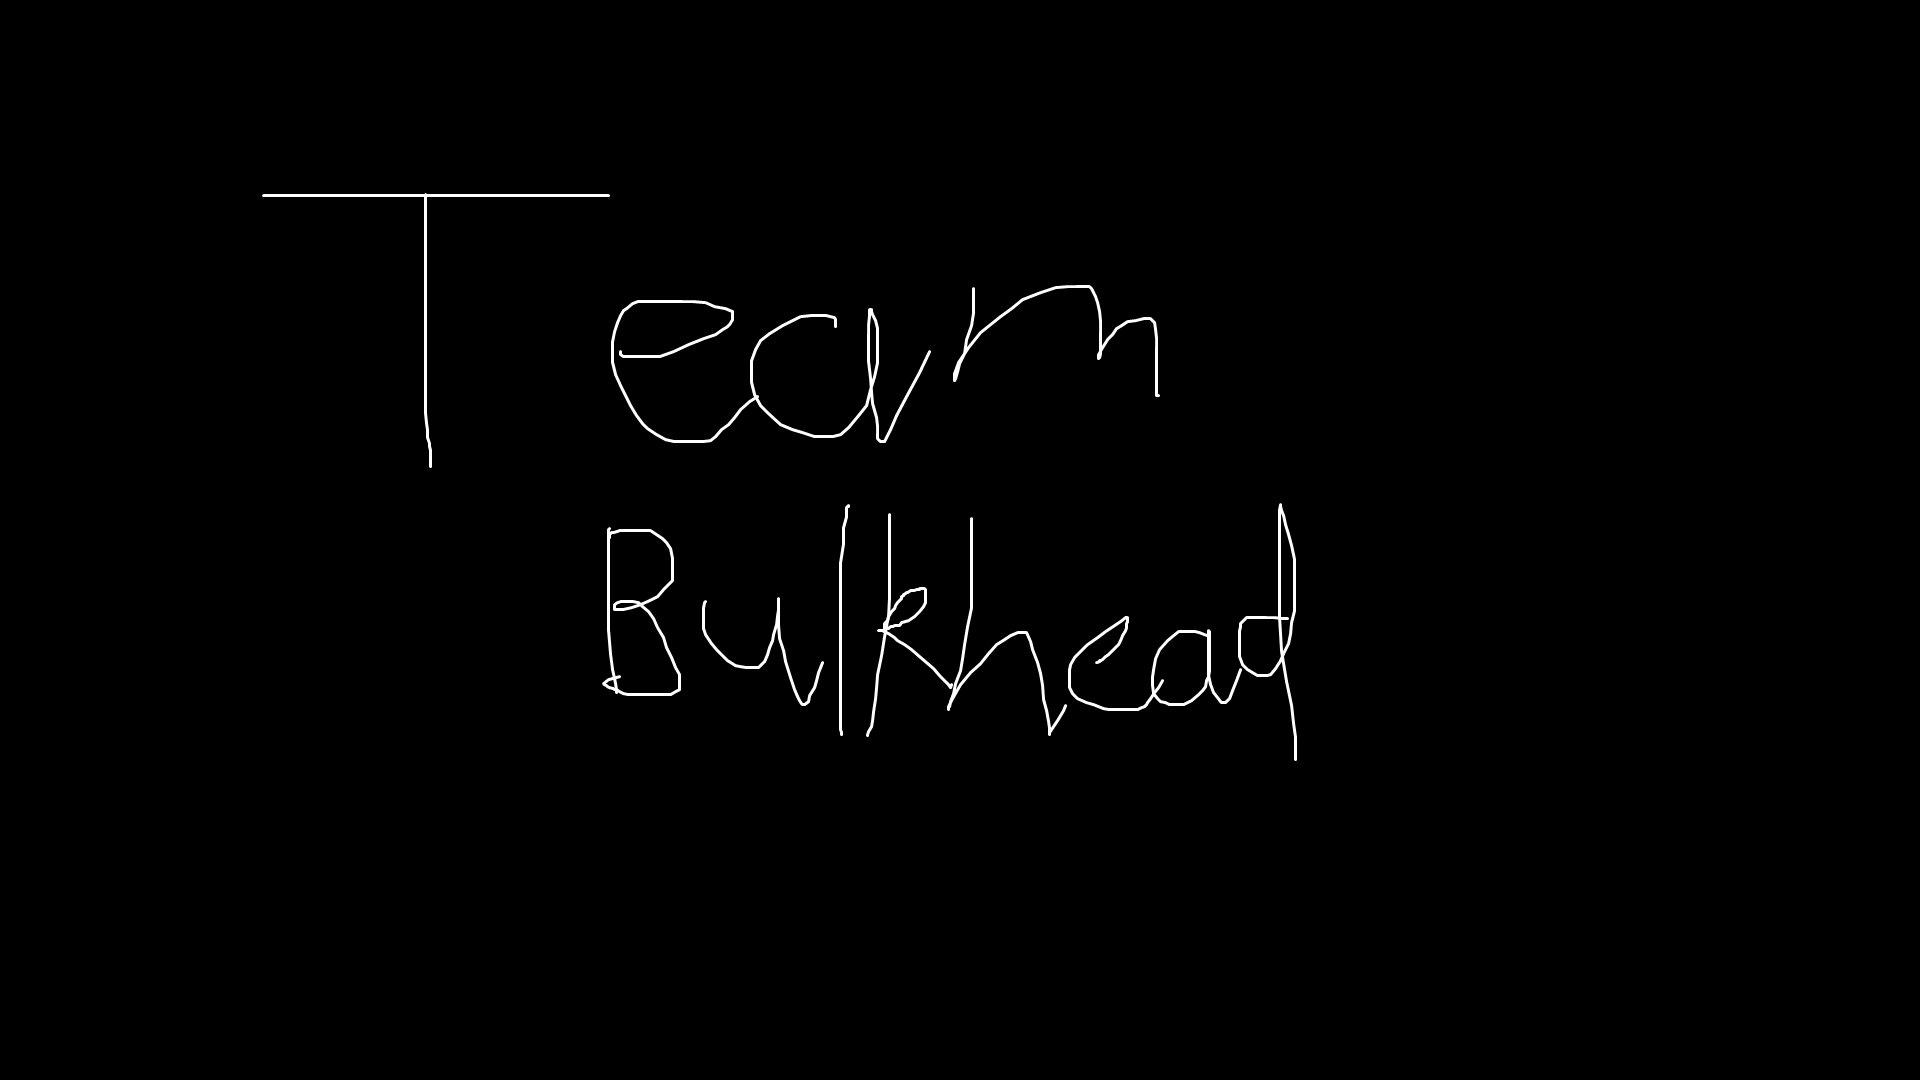 Team
Bulkhead